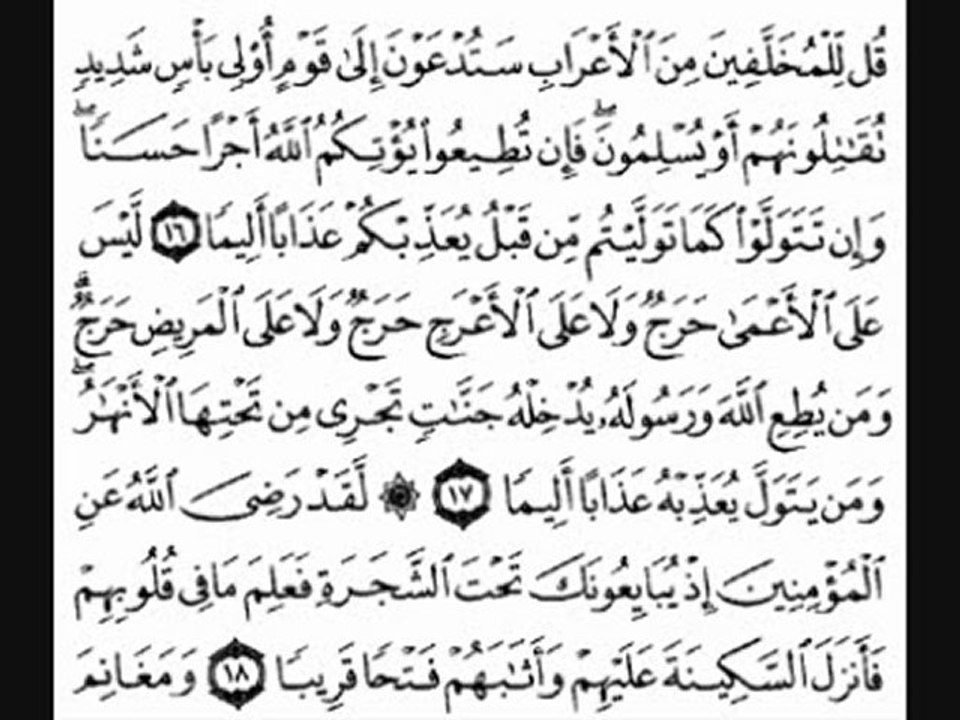 قُل لِّلْمُخَلَّفِينَ مِنَ ٱلْأَعْرَابِ سَتُدْعَوْنَ إِلَىٰ قَوْمٍ أُوْلِى بَأْسٍ شَدِيدٍ
تُقَـٰتِلُونَهُمْ أَوْ يُسْلِمُونَ ۖ فَإِن تُطِيعُوا۟ يُؤْتِكُمُ ٱللَّهُ أَجْرًا حَسَنًا ۖ
وَإِن تَتَوَلَّوْا۟ كَمَا تَوَلَّيْتُم مِّن قَبْلُ يُعَذِّبْكُمْ عَذَابًا أَلِيمًا ١٦ لَّيْسَ
عَلَى ٱلْأَعْمَىٰ حَرَجٌ وَلَا عَلَى ٱلْأَعْرَجِ حَرَجٌ وَلَا عَلَى ٱلْمَرِيضِ حَرَجٌ ۗ
وَمَن يُطِعِ ٱللَّهَ وَرَسُولَهُۥ يُدْخِلْهُ جَنَّـٰتٍ تَجْرِى مِن تَحْتِهَا ٱلْأَنْهَـٰرُ ۖ
وَمَن يَتَوَلَّ يُعَذِّبْهُ عَذَابًا أَلِيمًا ١٧ ۞ لَّقَدْ رَضِىَ ٱللَّهُ عَنِ
ٱلْمُؤْمِنِينَ إِذْ يُبَايِعُونَكَ تَحْتَ ٱلشَّجَرَةِ فَعَلِمَ مَا فِى قُلُوبِهِمْ
فَأَنزَلَ ٱلسَّكِينَةَ عَلَيْهِمْ وَأَثَـٰبَهُمْ فَتْحًا قَرِيبًا ١٨ وَمَغَانِمَ